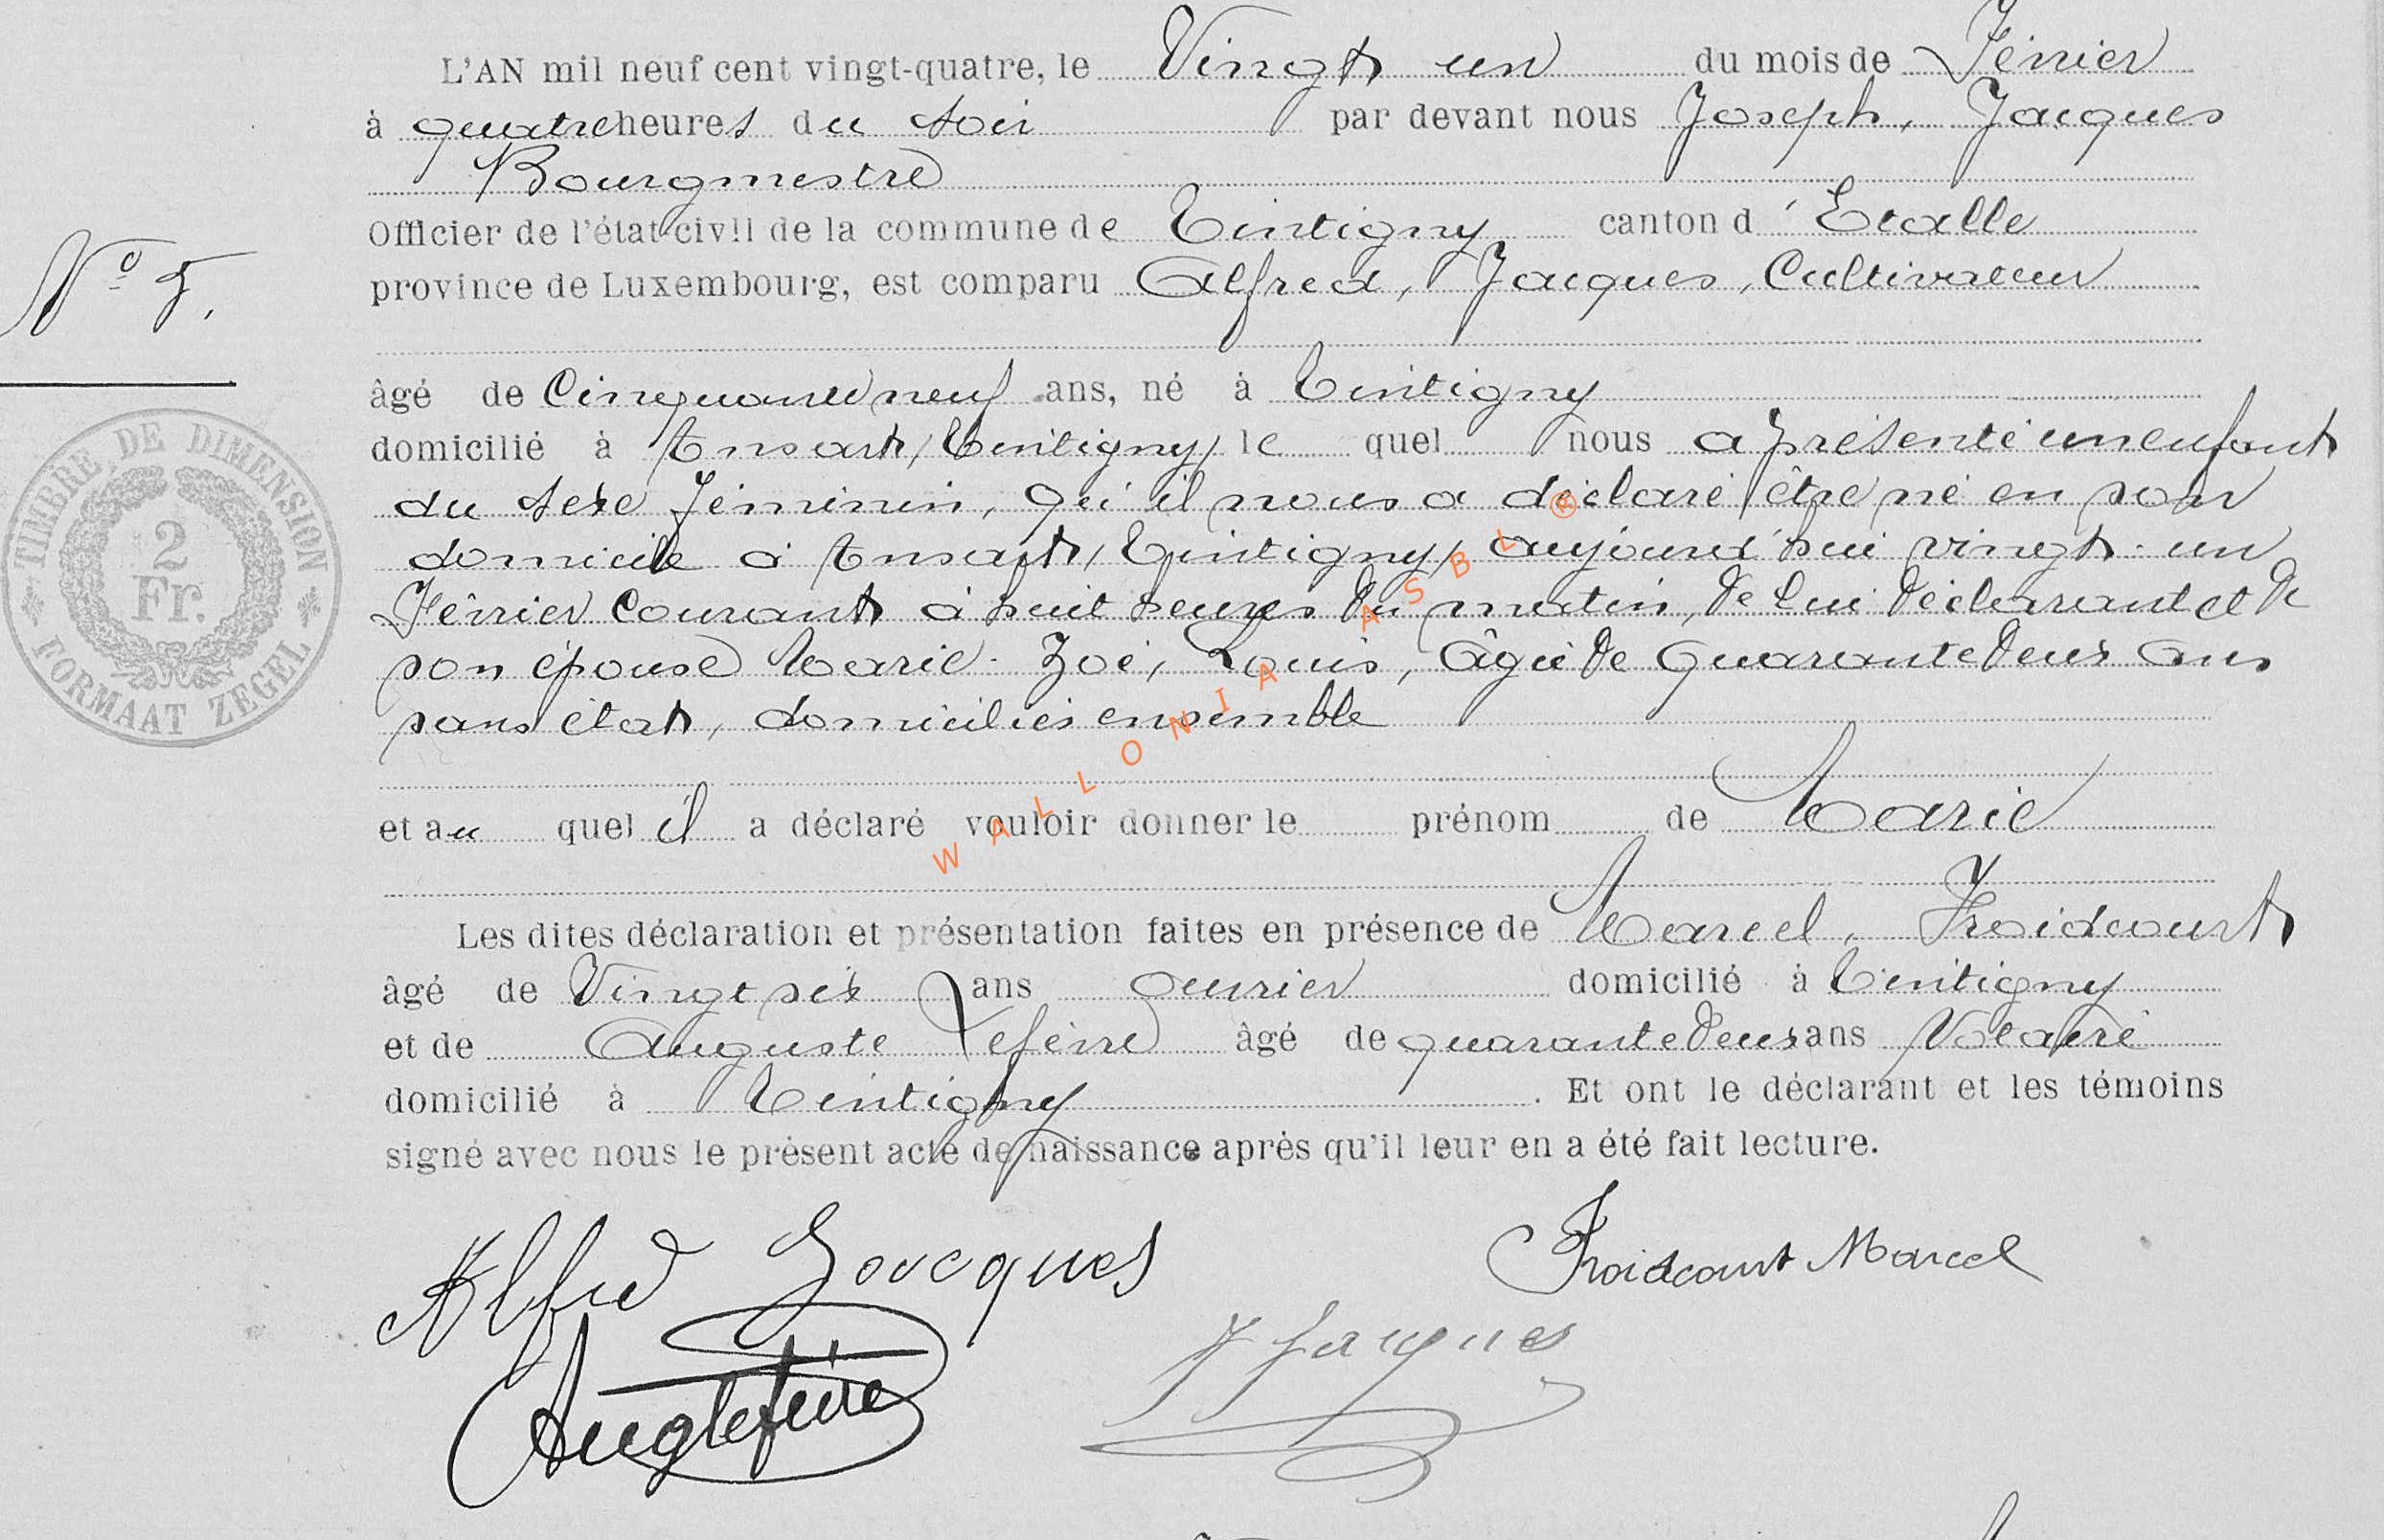 L'AN mil neuf cent vingt-quatre, le Vingt un du mois de Février
à quatre heures du soir par devant nous Joseph, Jacques
Bourgmestre
Officier de l'état civil de la commune de Tintigny canton d'Etalle
province de Luxembourg, est comparu Alfred, Jacques, Cultivateur
N° 5.
âgé de Cinquante neuf ans, né à Tintigny
domicilié à Ansart, Tintigny, le quel nous a présenté un enfant
du sexe féminin, qu'il nous a déclaré être né en son
domicile à Ansart, Tintigny, aujourd'hui vingt-un
Février courant à huit heures du matin, de lui déclarant et de
son épouse Marie-Zoé, Louis, âgée de quarante deux ans
sans état, domiciliés ensemble
et au quel il a déclaré vouloir donner le prénom de Marie
Les dites déclaration et présentation faites en présence de Marcel, Froidcourt
âgé de Vingt six ans ouvrier domicilié à Tintigny
et de Auguste Lefèvre âgé de quarante deux ans
domicilié à Tintigny. Et ont le déclarant et les témoins
signé avec nous le présent acte de naissance après qu'il leur en a été fait lecture.
TIMBRE DE DIMENSION
2
Fr.
FORMAAT ZEGEL
WALLONIA ASBL ®
Alfred Jacques
Froidcourt Marcel
J Jacques
Aug Lefèvre